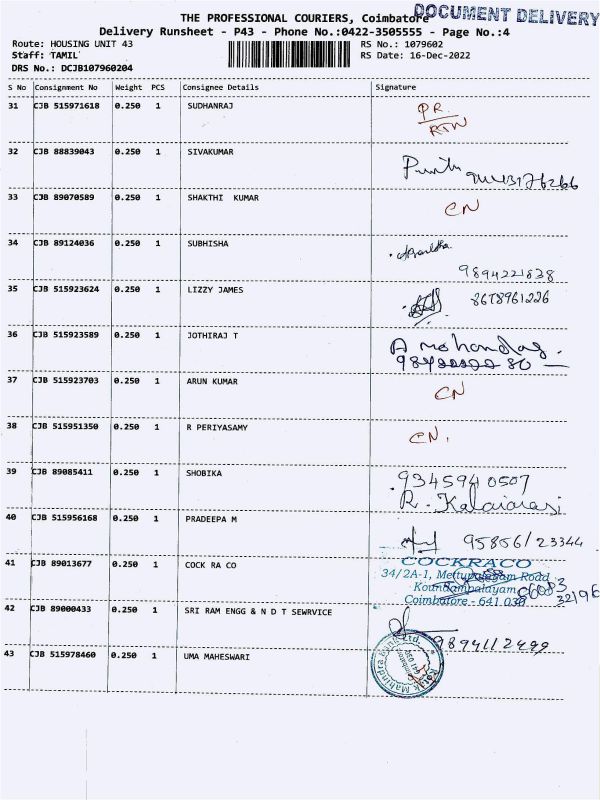 THE PROFESSIONAL COURIERS, Coimbatore
DOCUMENT DELIVERY
Delivery Runsheet - P43 - Phone No.:0422-3505555 - Page No.:4
Route: HOUSING UNIT 43 RS No.: 1079602
Staff: TAMIL RS Date: 16-Dec-2022
DRS No.: DCJB107960204
S No Consignment No Weight PCS Consignee Details Signature
31 CJB 515971618 0.250 1 SUDHANRAJ PR.
RTN
32 CJB 88839043 0.250 1 SIVAKUMAR
33 CJB 89070589 0.250 1 SHAKTHI KUMAR CN
34 CJB 89124036 0.250 1 SUBHISHA
9894221838
35 CJB 515923624 0.250 1 LIZZY JAMES 8678961226
36 CJB 515923589 0.250 1 JOTHIRAJ T A mohandas.
37 CJB 515923703 0.250 1 ARUN KUMAR CN
38 CJB 515951350 0.250 1 R PERIYASAMY CN.
39 CJB 89085411 0.250 1 SHOBIKA 9345940507
R. Kalaiarasi
40 CJB 515956168 0.250 1 PRADEEPA M 95856/23344
41 CJB 89013677 0.250 1 COCK RA CO COCKRACO
34/2A-1, Mettupalayam Road
Koundampalayam
Coimbatore - 641 030
42 CJB 89000433 0.250 1 SRI RAM ENGG & N D T SEWRVICE
9894112499
43 CJB 515978460 0.250 1 UMA MAHESWARI Kotak Mahindra Bank Ltd.
Coimbatore